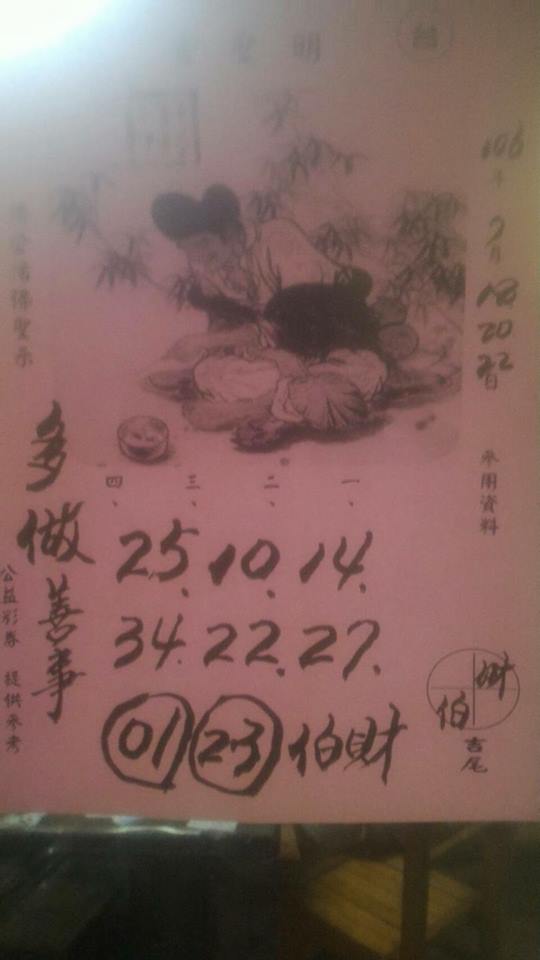 明聖
台
106年
9月
18
20
22日
參用資料
一、
二、
三、
四、
14、
10、
25、
27、
22、
34、
伯財
23
01
財
伯
吉尾
多做善事
佛聖示
公益彩券 提供參考